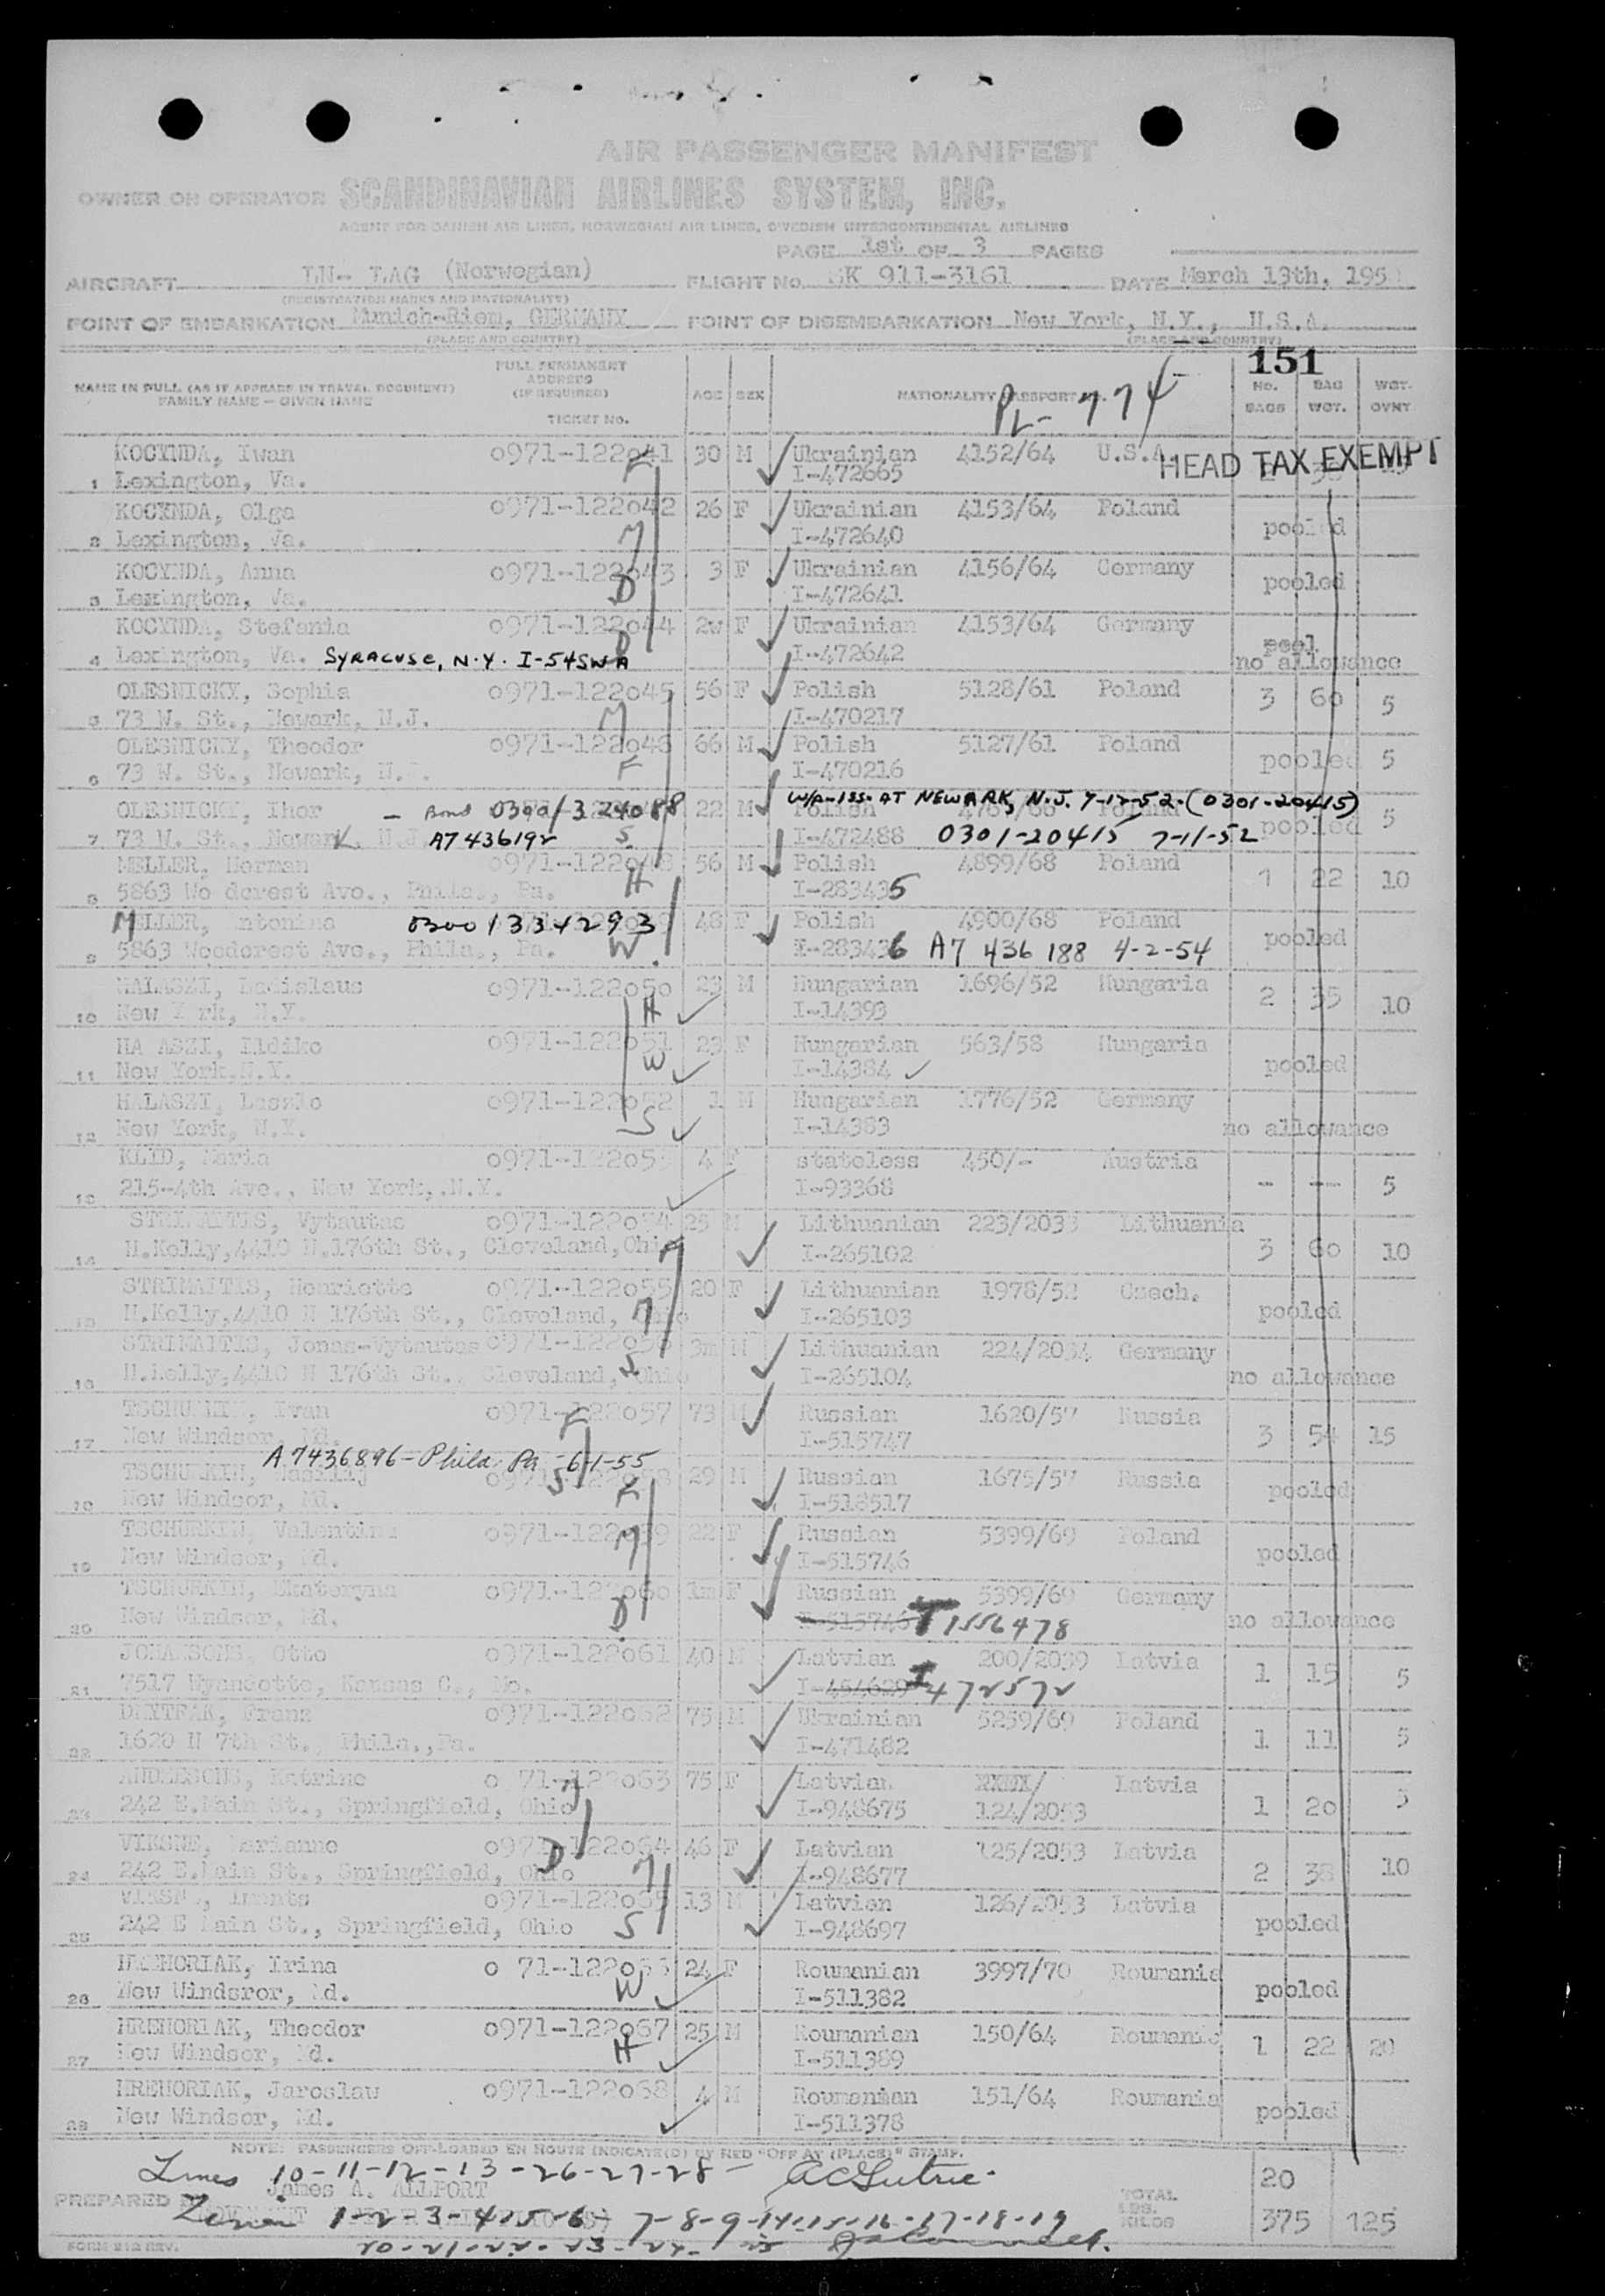 AIR PASSENGER MANIFEST
OWNER OR OPERATOR SCANDINAVIAN AIRLINES SYSTEM, INC.
AGENT FOR DANISH AIR LINES, NORWEGIAN AIR LINES, SWEDISH INTERCONTINENTAL AIRLINES
PAGE 1st OF 3 PAGES
AIRCRAFT LN- LAG (Norwegian) FLIGHT No. SK 911-3161 DATE March 13th, 195
(REGISTRATION MARKS AND NATIONALITY)
POINT OF EMBARKATION Munich-Riem, GERMANY POINT OF DISEMBARKATION New York, N.Y., U.S.A.
(PLACE AND COUNTRY) (PLACE AND COUNTRY)
151
NAME IN FULL (AS IT APPEARS IN TRAVEL DOCUMENT) FAMILY NAME — GIVEN NAME FULL PERMANENT ADDRESS (IF REQUIRED) TICKET No. AGE SEX NATIONALITY PASSPORT No. No. BAGS BAG WGT. WGT. OVNT
PL- 774
KOCYNDA, Iwan 0971-122041 30 M Ukrainian 4152/64 U.S.A. HEAD TAX EXEMPT
1 Lexington, Va. F I-472665
KOCYNDA, Olga 0971-122042 26 F Ukrainian 4153/64 Poland pooled
2 Lexington, Va. M I-472640
KOCYNDA, Anna 0971-122043 3 F Ukrainian 4156/64 Germany pooled
3 Lexington, Va. D I-472641
KOCYNDA, Stefania 0971-122044 2w F Ukrainian 4153/64 Germany pool
4 Lexington, Va. SYRACUSE, N.Y. I-545WA D I-472642 no allowance
OLESNICKY, Sophia 0971-122045 56 F Polish 5128/61 Poland 3 60 5
5 73 W. St., Newark, N.J. M I-470217
OLESNICKY, Theodor 0971-122046 66 M Polish 5127/61 Poland pooled 5
6 73 W. St., Newark, N. F I-470216
W/A-ISS. AT NEWARK, N.J. 7-17-52. (0301-20415)
OLESNICKY, Ihor - Bond 0300/324088 22 M Polish Poland pooled 5
7 73 W. St., Newark, N.J. A7436192 S I-472488 0301-20415 7-11-52
MELLER, Herman 0971-122048 56 M Polish 4899/68 Poland 1 22 10
8 5863 Wo dcrest Ave., Phila., Pa. H I-283435
MELLER, ntonina 0300/334293 48 F Polish 4900/68 Poland pooled
9 5863 Woodcrest Ave., Phila., Pa. W. I-283436 A7 436 188 4-2-54
HALASZI, Ladislaus 0971-122050 23 M Hungarian 1696/52 Hungaria 2 35 10
10 New Y rk, N.Y. H I-14393
HA ASZI, Ildiko 0971-122051 23 F Hungarian 563/58 Hungaria pooled
11 New York.N.Y. W I-14384
HALASZI, Laszlo 0971-122052 1 M Hungarian 1776/52 Germany
12 New York, N.Y. S I-14383 no allowance
KLYD, Maria 0971-12205 4 F stateless 450/- Austria
13 215-4th Ave., New York, .N.Y. I-93368 -- --- 5
STRIMAITIS, Vytautas 0971-122054 25 M Lithuanian 223/2033 Lithuania
14 H.Kelly,4410 H.176th St., Cleveland,Ohio F I-265102 3 60 10
STRIMAITIS, Henriette 0971-122055 20 F Lithuanian 1978/52 Czech.
15 H.Kelly,4410 H 176th St., Cleveland, Ohio M I-265103 pooled
STRIMAITIS, Jonas-Vytautas 0971-122056 3m M Lithuanian 224/2034 Germany
16 H.Kelly,4410 H 176th St., Cleveland, Ohio S I-265104 no allowance
TSCHURKIN, Ivan 0971-122057 73 M Russian 1620/57 Russia
17 New Windsor, Md. F I-515747 3 54 15
A 7436896-Phila. Pa -6-1-55
TSCHURKIN, 29 M Russian 1675/57 Russia
18 New Windsor, Md. S F I-518517 pooled
TSCHURKIN, Valentina 0971-122059 22 F Russian 5399/69 Poland
19 New Windsor, Md. M I-515746 pooled
TSCHURKIN, Ekateryna 0971-122060 1m F Russian 5399/69 Germany
20 New Windsor, Md. D I-515746 T 1556478 no allowance
JOHANSONS, Otto 0971-122061 40 M Latvian 200/2039 Latvia
21 7517 Wyandotte, Kansas C., Mo. I-454629 I 472572 1 15 5
DMYTRAK, Franz 0971-122062 75 M Ukrainian 5259/69 Poland
22 1620 N 7th St., Phila.,Pa. I-471482 1 11 5
ANDERSONS, Katrine 0 71-122063 75 F Latvian Latvia
23 242 E.Main St., Springfield, Ohio M I-948675 124/2053 1 20 5
VIKSNE, Marianne 0971-122064 46 F Latvian 125/2053 Latvia
24 242 E.Main St., Springfield, Ohio D M I-948677 2 38 10
VIKSNE, Imants 0971-122065 13 M Latvian 126/2053 Latvia
25 242 E Main St., Springfield, Ohio S I-948697 pooled
HREHORIAK, Irina 0 71-122066 24 F Roumanian 3997/70 Roumania
26 New Windsror, Md. W I-511382 pooled
HREHORIAK, Theodor 0971-122067 25 M Roumanian 150/64 Roumania
27 New Windsor, Md. H I-511389 1 22 20
HREHORIAK, Jaroslaw 0971-122068 4 M Roumanian 151/64 Roumania
28 New Windsor, Md. I-511378 pooled
NOTE: PASSENGERS OFF-LOADED EN ROUTE INDICATE(D) BY RED "OFF AT (PLACE)" STAMP.
Lines 10-11-12-13-26-27-28-
James A. ALLPORT 20
PREPARED TOTAL LBS. KILOS
1-2-3-4-5-6 7-8-9-14-15-16-17-18-19 375 125
FORM 212 REV. 20-21-22-23-24- 25